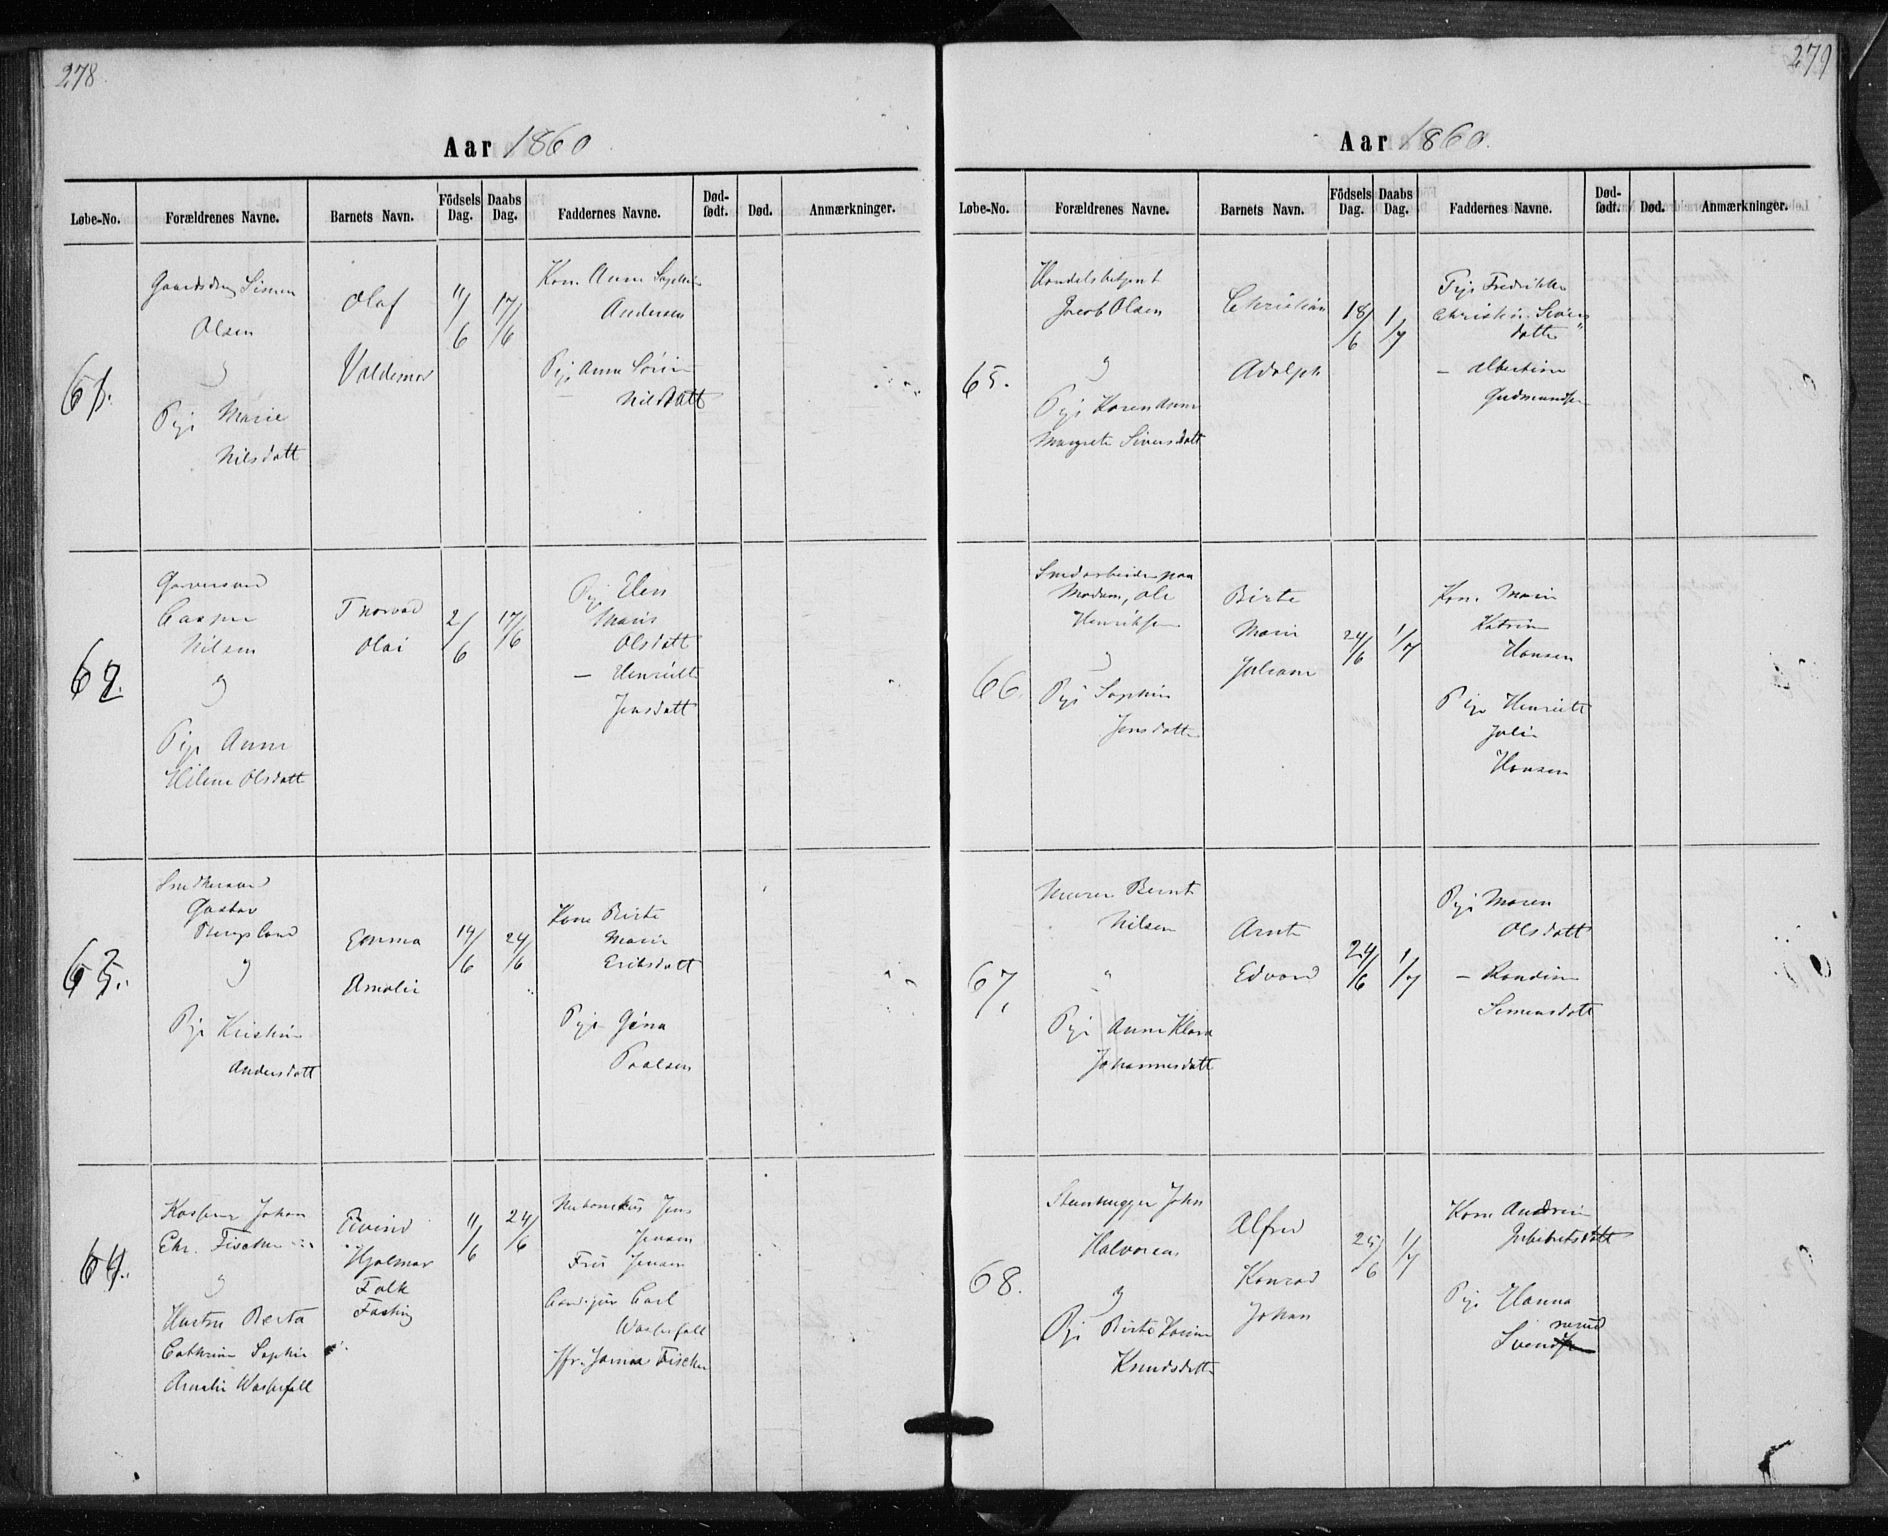 278
Aar 1860
Løbe-No.
Forældrenes Navne.
Barnets Navn.
Födsels Dag.
Daabs Dag.
Faddernes Navne.
Død-født.
Død.
Anmærkninger.
61.
Gaardsdreng Simen
Olsen
og
Pige Marie
Nilsdatt
Olaf
Valdemar
11/6
17/6
Kone Anne Sophie
Andersen
Pige Anne Sørine
Nilsdatt
62.
Garversvend
Casper
Nilsen
og
Pige Anne
Helene Olsdatt
Thorvad
Olai
2/6
17/6
Pig Elen
Marie
Olsdatt
— Henriette
Jensdatt
63.
Smedsvend
Gustav
Bergsland
og
Pige Kristine
Andersdatt
Emma
Amalie
14/6
24/6
Kone Birte
Marie
Eriksdatt
Pige Gina
Paalsen
64.
Johan
Chr. Fischer
og
Hustru Berta
Cathrine Sophie
Amalie Wasserfall
Eivind
Hjalmar
Falk
Fasting
11/6
24/6
Jens
Jensen
Fru Jensen
Cand. jur Carl
Wasserfall
Jfr. Janna Fischer
279
Aar 1860.
Løbe-No.
Forældrenes Navne.
Barnets Navn.
Födsels Dag.
Daabs Dag.
Faddernes Navne.
Død-født.
Død.
Anmærkninger.
65.
Handelsbetjent
Jacob Olsen
og
Pige Karen Anne
Margrete Siversdatt
Christian
Adolph
18/6
1/7
Pige Fredrikke
Christine Sivers
datter
— Albertine
Gudmundsen
66.
Smedarbeider paa
Modum, Ole
Henriksen
og
Pige Sophie
Jensdatter
Birte
Marie
Juliane
24/6
1/7
Kone Marie
Katrine
Hansen
Pige Henriette
Julie
Hansen
67.
Murer Bernt
Nilsen
"
Pige Anne Klara
Johannesdatt
Arnt
Edvard
24/6
1/7
Pige Maren
Olsdatt
— Randine
Simensdatt
68.
Steenhugger John
Halvorsen
og
Pige Birte Karine
Knudsdatter
Alfred
Konrad
Johan
25/6
1/7
Kone Andrine
Pige Hanna
Svend